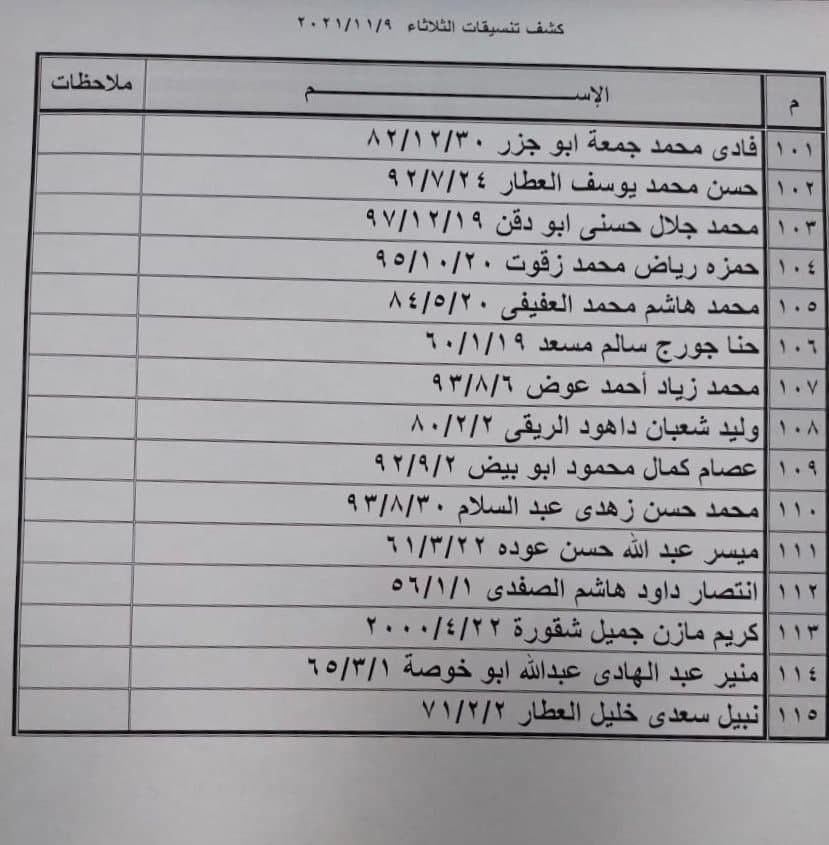 كشف تنسيقات الثلاثاء ٢٠٢١/١١/٩
م الإســـــــم ملاحظات
١٠١ فادى محمد جمعة ابو جزر ٨٢/١٢/٣٠
١٠٢ حسن محمد يوسف العطار ٩٢/٧/٢٤
١٠٣ محمد جلال حسنى ابو دقن ٩٧/١٢/١٩
١٠٤ حمزه رياض محمد زقوت ٩٥/١٠/٢٠
١٠٥ محمد هاشم محمد العفيفى ٨٤/٥/٢٠
١٠٦ حنا جورج سالم مسعد ٦٠/١/١٩
١٠٧ محمد زياد أحمد عوض ٩٣/٨/٦
١٠٨ وليد شعبان داهود الريقى ٨٠/٢/٢
١٠٩ عصام كمال محمود ابو بيض ٩٢/٩/٢
١١٠ محمد حسن زهدى عبد السلام ٩٣/٨/٣٠
١١١ ميسر عبد الله حسن عوده ٦١/٣/٢٢
١١٢ انتصار داود هاشم الصفدى ٥٦/١/١
١١٣ كريم مازن جميل شقورة ٢٠٠٠/٤/٢٢
١١٤ منير عبد الهادى عبدالله ابو خوصة ٦٥/٣/١
١١٥ نبيل سعدى خليل العطار ٧١/٢/٢